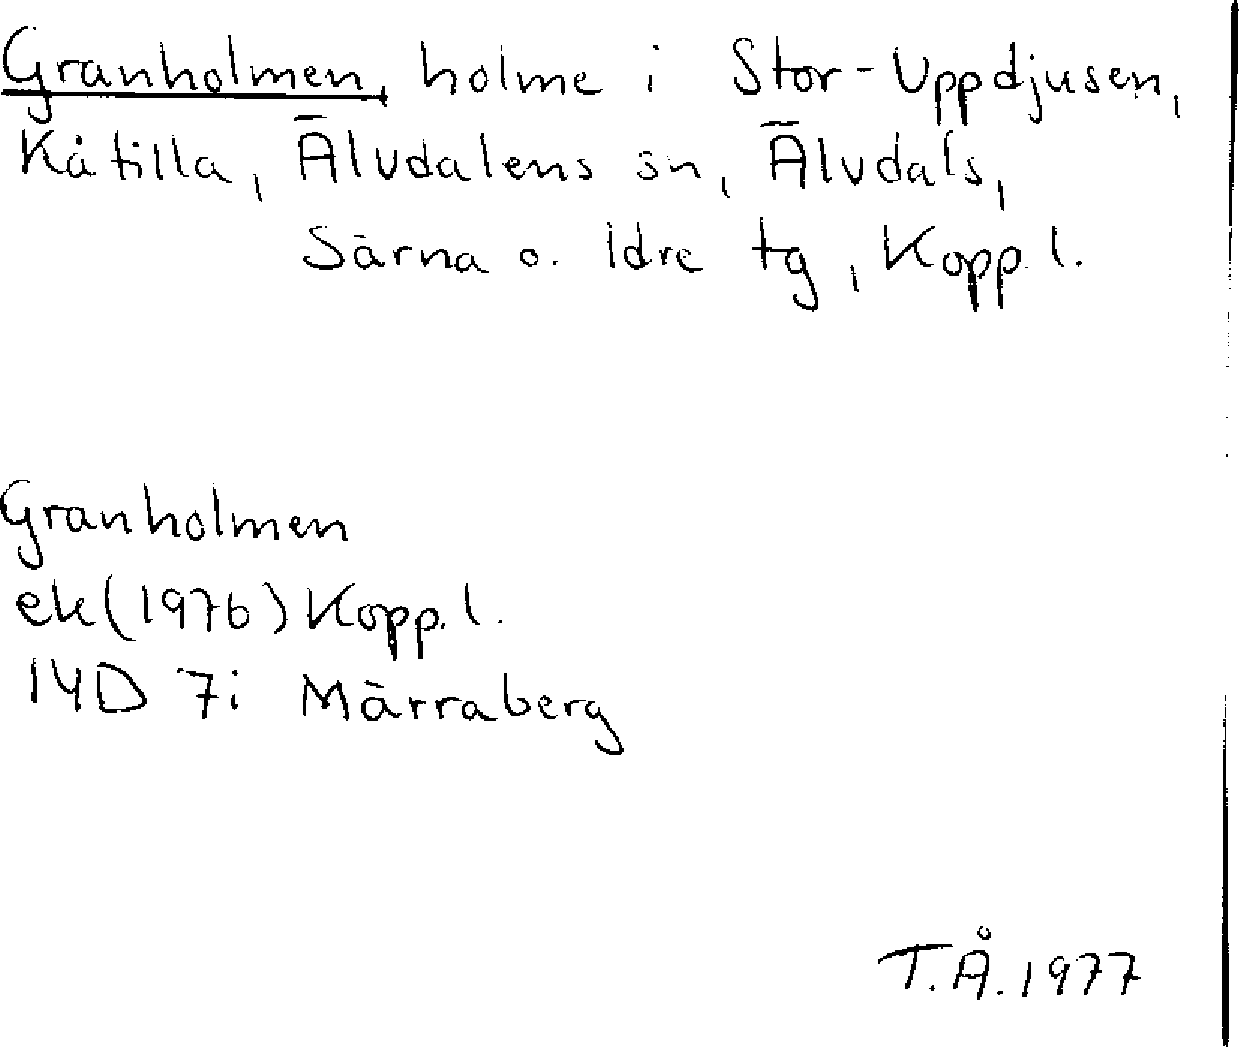 Granholmen, holme i Stor-Uppdjusen,
Kåtilla, Älvdalens sn, Älvdals,
Särna o. Idre tg, Kopp. l.
Granholmen
ek (1976) Kopp. l.
14D 7i Märraberg
T.Å. 1977